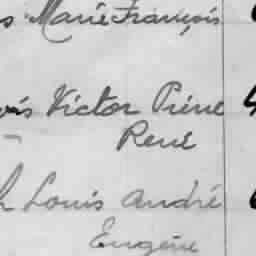 s Marie François
Victor Pierre
René
Louis André
Eugène